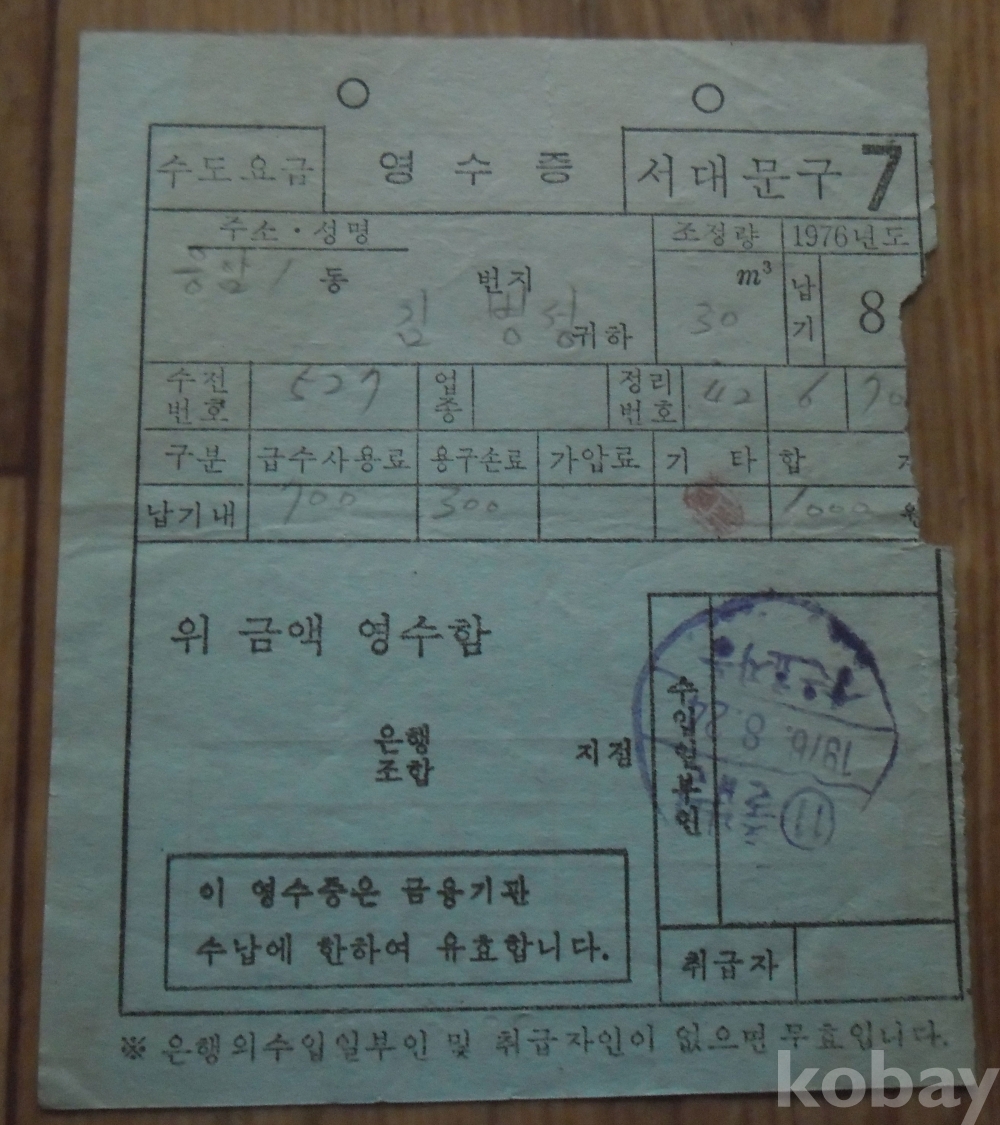 수도요금 영수증 서대문구 7
주소·성명 조정량 1976년도
응암 1 동 번지 m³ 납기 8
김 병 귀하 30
수전번호 527 업종 정리번호 42 6
구분 급수사용료 용구손료 가압료 기 타 합
납기내 700 300 1000 원
위 금액 영수함
은행 조합 지점
수입일부인
1976. 8.
11
이 영수증은 금융기관
수납에 한하여 유효합니다.
취급자
※ 은행외수입일부인 및 취급자인이 없으면 무효입니다.
kobay